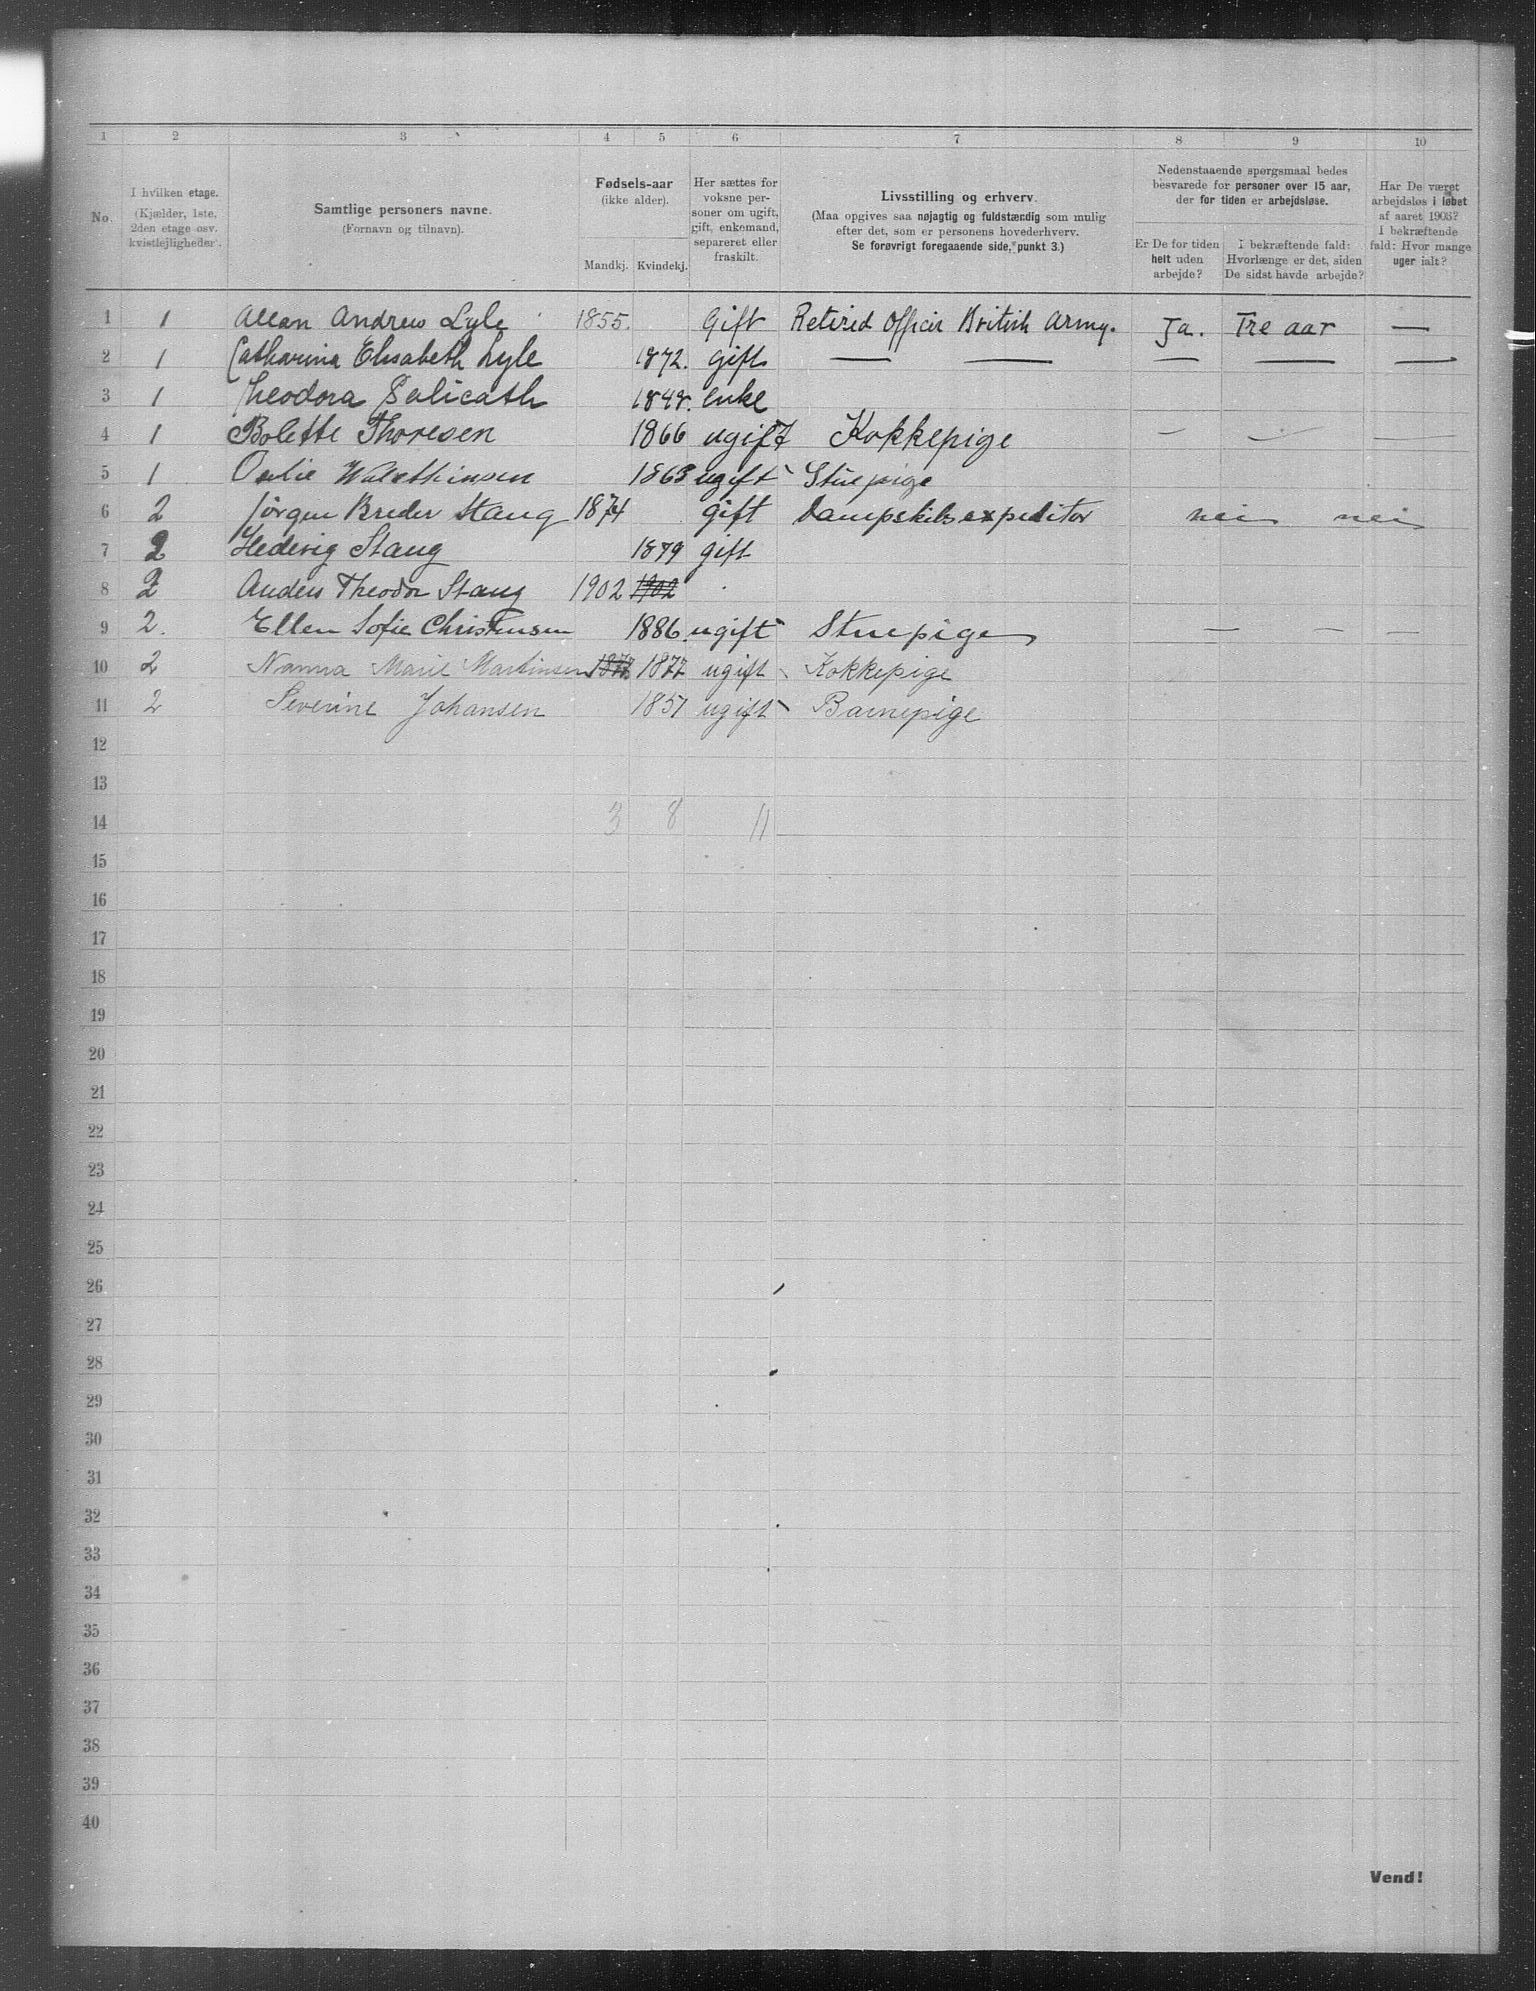 1 2 3 4 5 6 7 8 9 10
No. I hvilken etage. (Kjælder, 1ste, 2den etage osv. kvistlejligheder). Samtlige personers navne. (Fornavn og tilnavn). Fødsels-aar (ikke alder). Mandkj. Kvindekj. Her sættes for voksne personer om ugift, gift, enkemand, separeret eller fraskilt. Livsstilling og erhverv. (Maa opgives saa nøjagtig og fuldstændig som mulig efter det, som er personens hovederhverv. Se forøvrigt foregaaende side, punkt 3.) Nedenstaaende spørgsmaal bedes besvarede for personer over 15 aar, der for tiden er arbejdsløse. Er De for tiden helt uden arbejde? I bekræftende fald: Hvorlænge er det, siden De sidst havde arbejde? Har De været arbejdsløs i løbet af aaret 1903? I bekræftende fald: Hvor mange uger ialt?
1 1 Allan Andrew Lyle 1855. Gift Retired Officer British Army. Ja. Tre aar —
2 1 Catharina Elisabeth Lyle 1872. gift — — — — —
3 1 Theodora Salicath 1848. enke
4 1 Bolette Thoresen 1866 ugift Kokkepige — — —
5 1 1863 ugift Stuepige
6 2 Jørgen Breder Stang 1874 gift Dampskibsexpeditør nei nei
7 2 Hedevig Stang 1879 gift
8 2 Anders Theodor Stang 1902 1902
9 2. Ellen Sofie Christensen 1886. ugift Stuepige — — —
10 2 Nanna Marie Martinsen 1877 1877 ugift Kokkepige
11 2 Severine Johansen 1857 ugift Barnepige
12
13
14 3 8 11
15
16
17
18
19
20
21
22
23
24
25
26
27
28
29
30
31
32
33
34
35
36
37
38
39
40
Vend!